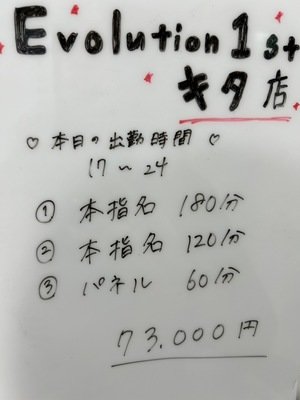 Evolution 1st
キタ店
♡ 本日の出勤時間 ♡
17〜24
① 本指名 180分
② 本指名 120分
③ パネル 60分
73.000円